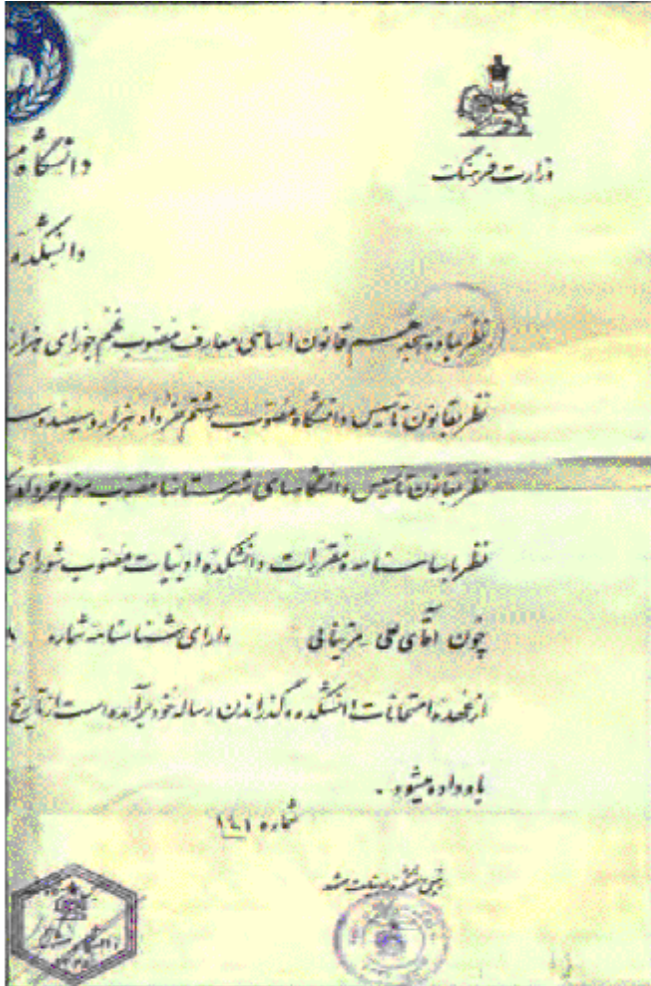 وزارت فرهنگ
دانشگاه
دانشکده
نظر بماده هیجدهم قانون اساسی معارف مصوب
نظر بقانون تأسیس دانشگاه مصوب هشتم خرداد هزار و سیصد و
نظر بقانون تأسیس دانشگاههای شهرستانها مصوب سوم خرداد
نظر باساسنامه و مقررات دانشکده ادبیات مصوب شورای
چون آقای علی مزینانی دارای شناسنامه شماره
از عهده امتحانات دانشکده و گذراندن رساله خود برآمده است از تاریخ
باو داده میشود .
شماره
رئیس دانشکده ادبیات مشهد